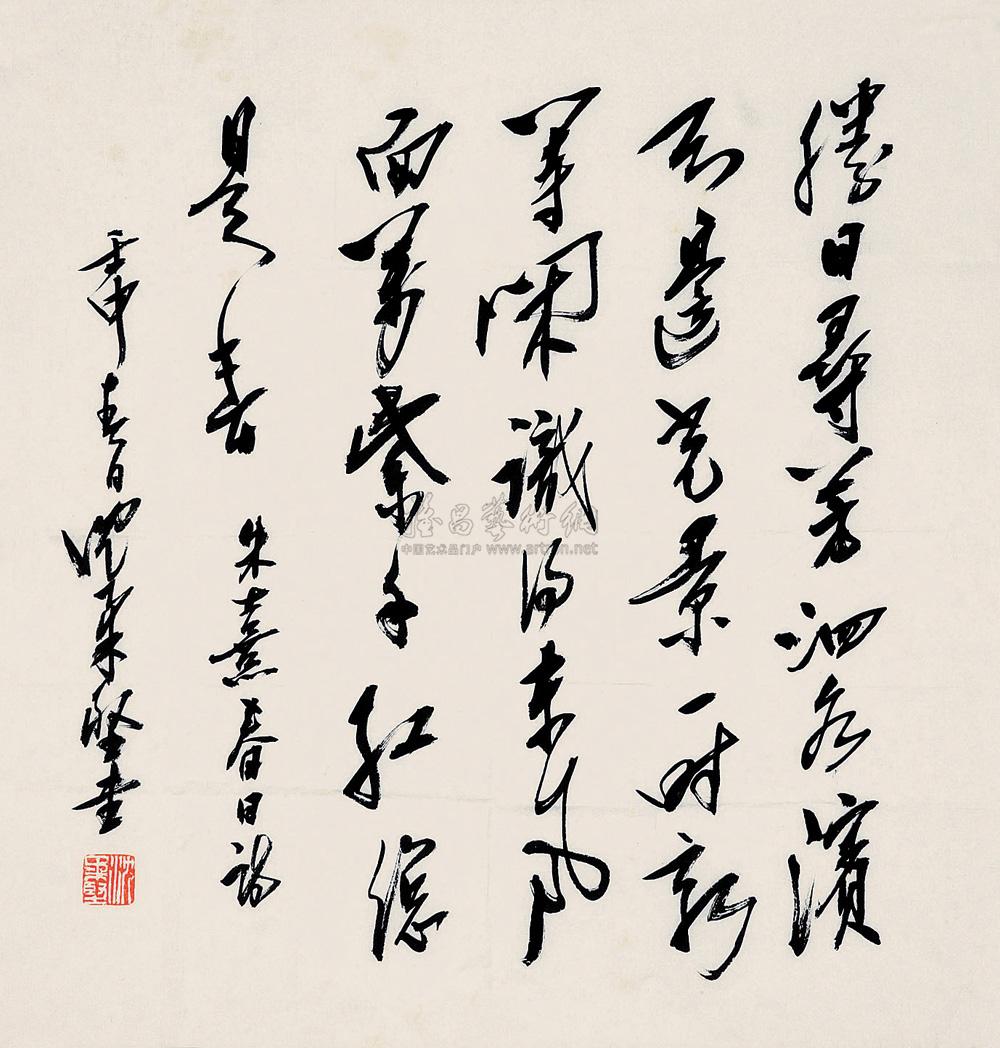 勝日尋芳泗水濱
无邊光景一时新
等閑識得東風
面萬紫千紅總
是春 朱熹春日詩
壬申春日沈柔堅書
沈柔堅
雅昌藝術網
中国艺术品门户 www.artron.net